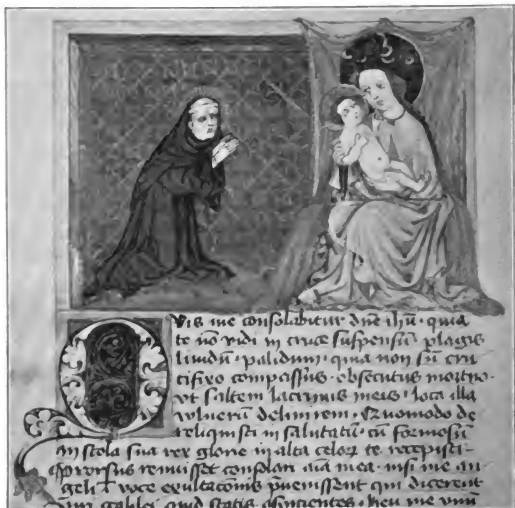 Quis me consolabitur dñe ihū · quia
te nō vidi in cruce suspensū plagis
liuidū · palidum · quia non sū cru
cifixo compassus · obsecutus mortuo ·
vt saltem lacrimis meis · loca illa
vulnerū delinirem · Quomodo de
reliquisti insalutatū · cū formosū
in stola sua rex glorie in alta celoꝝ te recepisti ·
Prorsus renuisset consolari aīa mea · nisi me an
geli voce exultacōnis pꝛeuenissent qui dicerent
viri galilei quid statis aspicientes · heu me vnū